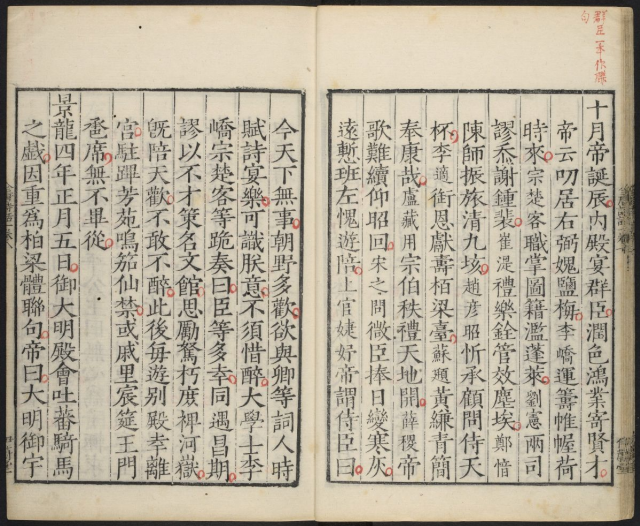 群臣一本作聯
句
十月帝誕辰內殿宴群臣潤色鴻業寄賢才
帝云叨居右弼媿鹽梅李嶠運籌帷幄荷
時來宗楚客職掌圖籍濫蓬萊劉憲兩司
謬忝謝鍾裴崔湜禮樂銓管效塵埃鄭愔
陳師振旅清九垓趙彥昭忻承顧問侍天
杯李適銜恩獻壽柏梁臺蘇頲黃縑青簡
奉康哉盧藏用宗伯秩禮天地開薛稷帝
歌難續仰昭回宋之問微臣捧日變寒灰
遠慙班左愧遊陪上官婕妤帝謂侍臣曰
今天下無事朝野多歡欲與卿等詞人時
賦詩宴樂可識朕意不須惜醉大學士李
嶠宗楚客等跪奏曰臣等多幸同遇昌期
謬以不才策名文館思勵駑朽庶裨河嶽
既陪天歡不敢不醉此後每遊別殿幸離
宮駐蹕芳苑鳴笳仙禁或戚里宸筵王門
卺席無不畢從
景龍四年正月五日御大明殿會吐蕃騎馬
之戲因重為柏梁體聯句帝曰大明御宇